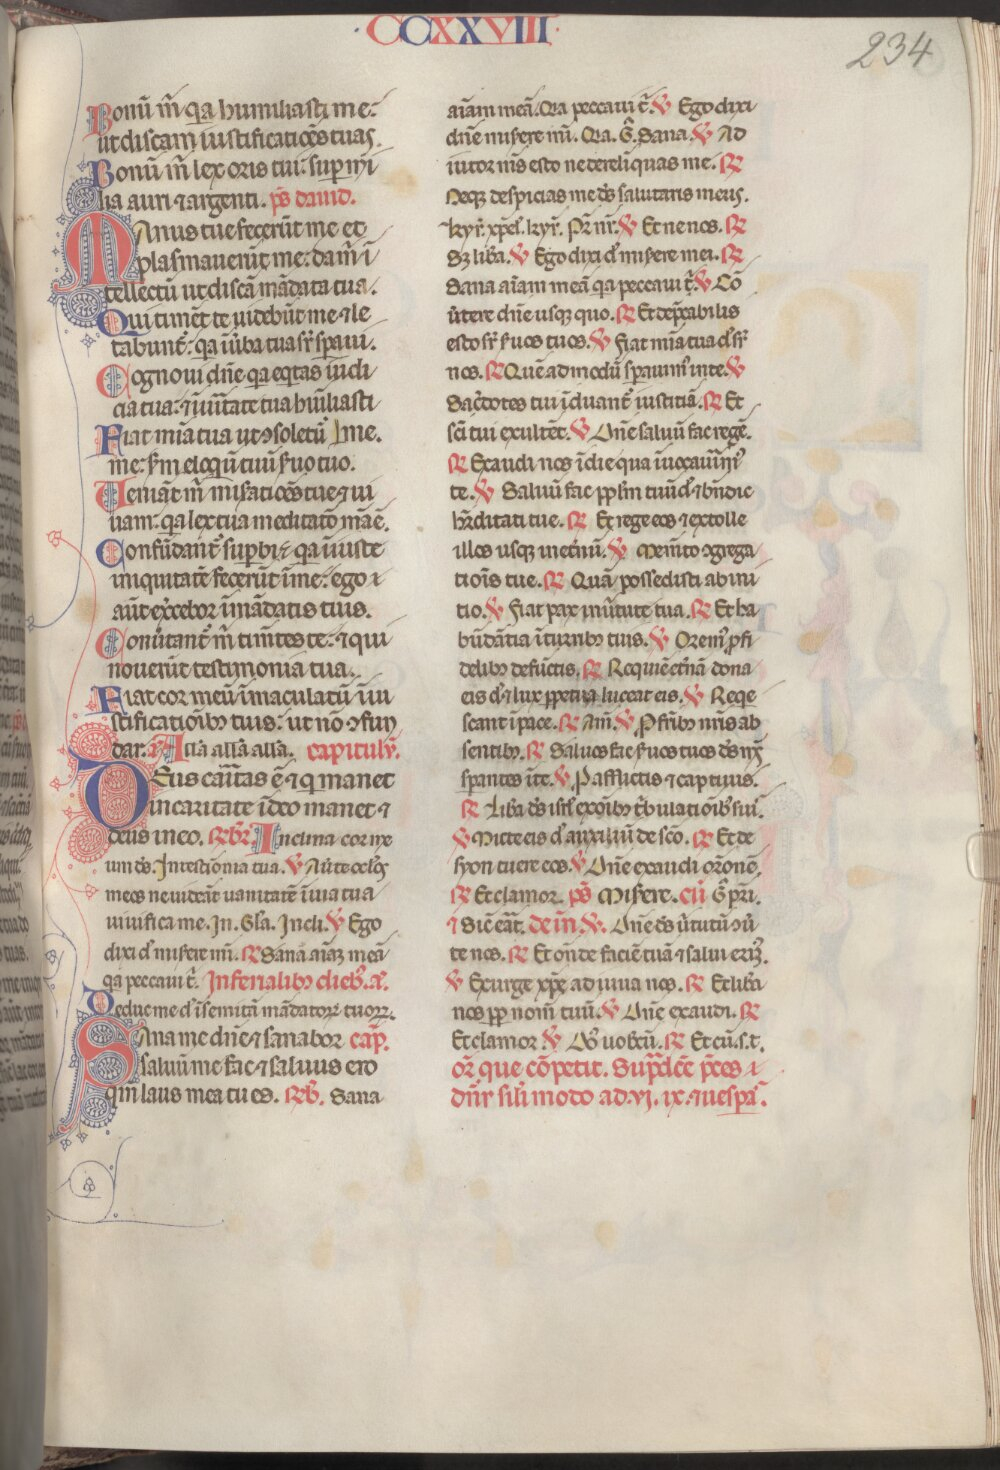 ·CCXXVIII·
234
Bonū m̄ qa humiliasti me:
ut discam iustificatiōes tuas.
Bonū m̄ lex oris tui: sup mi
lia auri ⁊ argenti. ps̄ dauid.
Manus tue fecerūt me et
plasmauerūt me: da m̄ ī
tellectū ut discā mādata tua.
Qui timēt te uidebūt me ⁊ le
tabunt̄: qa ī ūba tua sr̄ spaui.
Cognoui dn̄e qa eqtas iudi
cia tua: ⁊ ī ūitate tua hūiliasti
Fiat mīa tua ut ꝯsoletū me.
me: sm̄ eloqū tuū ſuo tuo.
Ueniāt m̄ misatiōes tue ⁊ ui
uam: qa lex tua meditatō mā ē.
Confūdant̄ supbi qa iniuste
iniquitatē fecerūt ī me: ego
aūt exercebor ī mādatis tuis.
Conūtant̄ m̄ timētes te: ⁊ qui
nouerūt testimonia tua.
Fiat cor meū īmaculatū ī iu
stificatiōib tuis: ut nō ꝯfun
dar. Allā allā allā. capitulū.
Deus caritas ē ⁊ q manet
in caritate ī deo manet ⁊
deus in eo. Rb̄r. Inclina cor me
um ds̄. In testīonia tua. ℣ Aūte oclos
meos ne uideāt uanitatē ī uia tua
uiuifica me. In. Gl̄a. Incli. ℣ Ego
dixi d̄ misere mī. ℟ Sana aīaz meā
qa peccaui t̄. In ferialib dieb. a.
Deduc me d̄ ī semitā mādatorꝝ tuorꝝ.
Sana me dn̄e ⁊ sanabor cap̄.
saluū me fac ⁊ saluus ero
qm̄ laus mea tu es. Rb̄. Sana
aīam meā. Qa peccaui t̄. ℣ Ego dixi
dn̄e misere mī. Qa. Ḡ. Sana. ℣ Ad
iutor m̄s esto ne derelīquas me. ℟
Neqz despicias me ds̄ salutaris meus.
kyr̄. xp̄e. kyr̄. Pr̄ nr̄. ℣ Et ne nos. ℟
Sz lib̄a. ℣ Ego dixi d̄ misere mei. ℟
Sana aīam meā qa peccaui t̄. ℣ Cō
ūtere dn̄e usqz quo. ℟ Et dep̄cabilis
esto sr̄ ſuos tuos. ℣ Fiat mīa tua d̄ sr̄
nos. ℟ Quēadmodū spauim in te. ℣
Sac̄dotes tui īduant̄ iustitiā. ℟ Et
sc̄i tui exultēt. ℣ Dn̄e saluū fac regē.
℟ Exaudi nos ī die qua īuocauim
te. ℣ Saluū fac pplm tuū d̄ ⁊ bn̄dic
hr̄ditati tue. ℟ Et rege eos ⁊ extolle
illos usqz inet̄nū. ℣ Memēto ꝯgrega
tiōis tue. ℟ Quā possedisti ab ini
tio. ℣ Fiat pax ī ūtute tua. ℟ Et ha
būdātia ī turrib tuis. ℣ Orem p fi
delib defūctis. ℟ Requiē et̄nā dona
eis d̄ ⁊ lux ppetua luceat eis. ℣ Reqe
scant ī pace. ℟ Am̄. ℣ P fr̄ib nr̄is ab
sentib. ℟ Saluos fac ſuos tuos ds̄ ms̄
spantes ī te. ℣ P afflictis ⁊ captiuis.
℟ Lib̄a ds̄ isrl̄ ex oīb t̄bulatiōib suis.
℣ Mitte eis d̄ auxiliū de sc̄o. ℟ Et de
syon tuere eos. ℣ Dn̄e exaudi orōnē.
℟ Et clamor. ps̄ Misere. cū Ḡ pr̄i.
⁊ Sic̄ erāt. de īn. ℣. Dn̄e ds̄ ūtutū ꝯū
te nos. ℟ Et on̄de faciē tuā ⁊ salui erim.
℣ Exurge xp̄e adiuua nos. ℟ Et lib̄a
nos pp nom̄ tuū. ℣ Dn̄e exaudi. ℟
Et clamor. ℣ Dn̄s uobcū. ℟ Et cū. s. t.
or̄ que cōpetit. Supd̄cē p̄ces
dn̄r sil̄i modo ad. vj. ix. ⁊ uesp̄as.